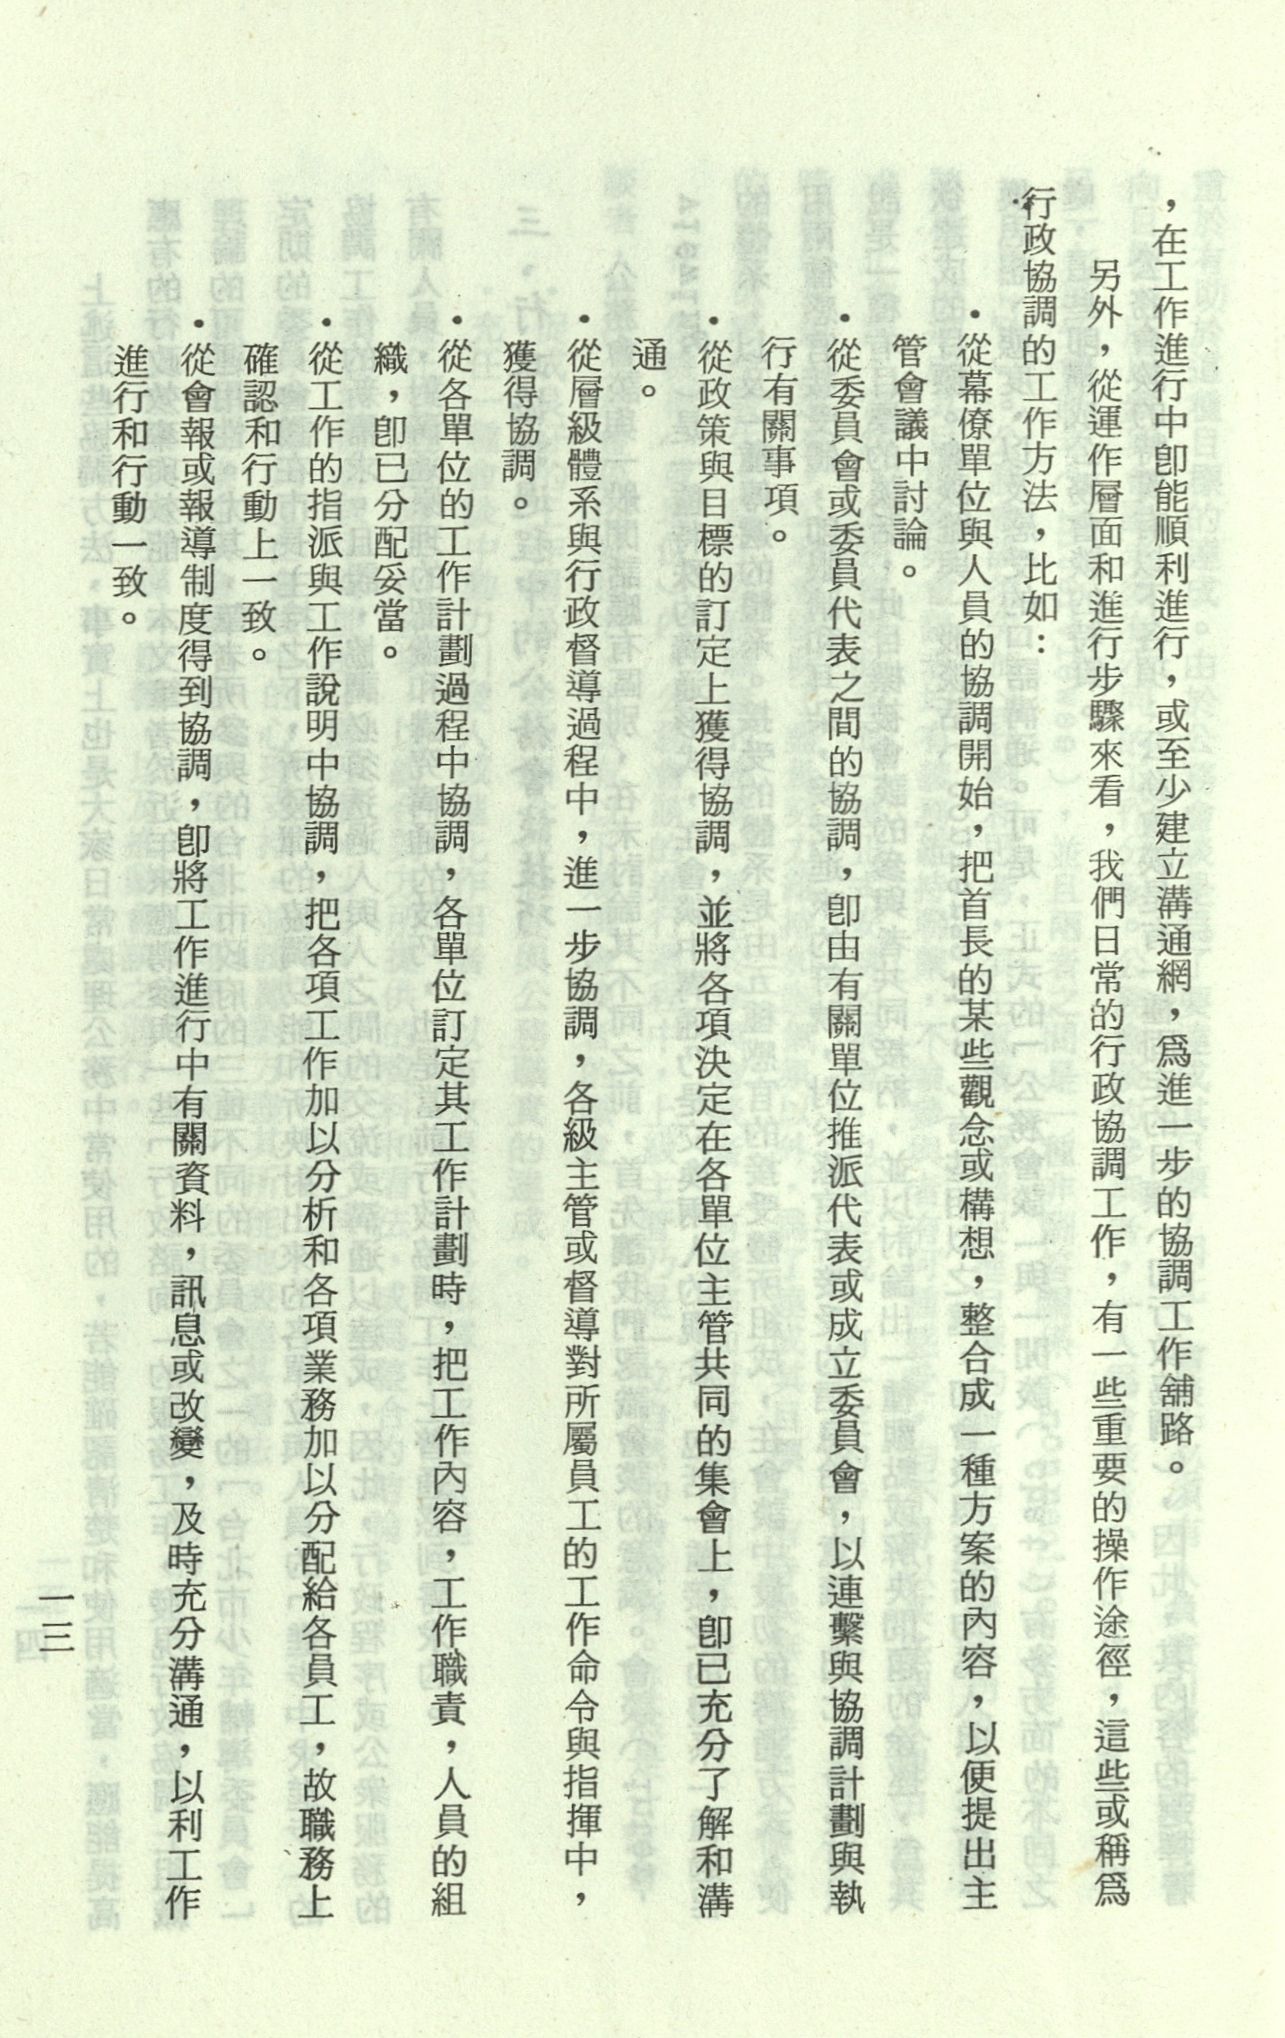 ，在工作進行中卽能順利進行，或至少建立溝通網，爲進一步的協調工作舖路。
另外，從運作層面和進行步驟來看，我們日常的行政協調工作，有一些重要的操作途徑，這些或稱爲
行政協調的工作方法，比如：
•從幕僚單位與人員的協調開始，把首長的某些觀念或構想，整合成一種方案的內容，以便提出主
管會議中討論。
•從委員會或委員代表之間的協調，卽由有關單位推派代表或成立委員會，以連繫與協調計劃與執
行有關事項。
•從政策與目標的訂定上獲得協調，並將各項決定在各單位主管共同的集會上，卽已充分了解和溝
通。
•從層級體系與行政督導過程中，進一步協調，各級主管或督導對所屬員工的工作命令與指揮中，
獲得協調。
•從各單位的工作計劃過程中協調，各單位訂定其工作計劃時，把工作內容，工作職責，人員的組
織，卽已分配妥當。
•從工作的指派與工作說明中協調，把各項工作加以分析和各項業務加以分配給各員工，故職務上
確認和行動上一致。
•從會報或報導制度得到協調，卽將工作進行中有關資料，訊息或改變，及時充分溝通，以利工作
進行和行動一致。
一三